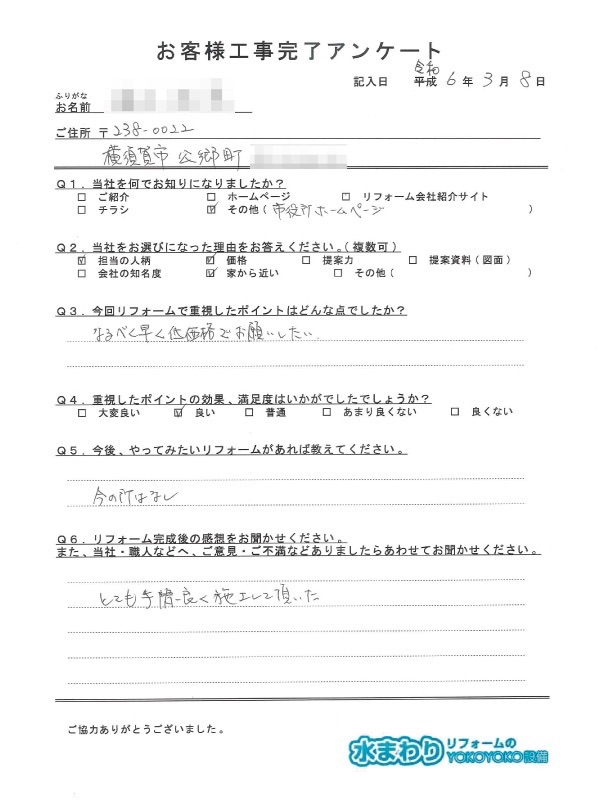 お客様工事完了アンケート
記入日 平成 令和 6 年 3 月 8 日
ふりがな
お名前
ご住所 〒238-0022
横須賀市 公郷町
Q1．当社を何でお知りになりましたか？
□ ご紹介 □ ホームページ □ リフォーム会社紹介サイト
□ チラシ ☑ その他（市役所ホームページ ）
Q2．当社をお選びになった理由をお答えください。（複数可）
☑ 担当の人柄 ☑ 価格 □ 提案力 □ 提案資料（図面）
□ 会社の知名度 ☑ 家から近い □ その他（ ）
Q3．今回リフォームで重視したポイントはどんな点でしたか？
なるべく早く低価格でお願いしたい．
Q4．重視したポイントの効果、満足度はいかがでしたでしょうか？
□ 大変良い ☑ 良い □ 普通 □ あまり良くない □ 良くない
Q5．今後、やってみたいリフォームがあれば教えてください。
今の所はなし
Q6．リフォーム完成後の感想をお聞かせください。
また、当社・職人などへ、ご意見・ご不満などありましたらあわせてお聞かせください。
とても手際良く施工して頂いた
ご協力ありがとうございました。
水まわりリフォームのYOKOYOKO設備